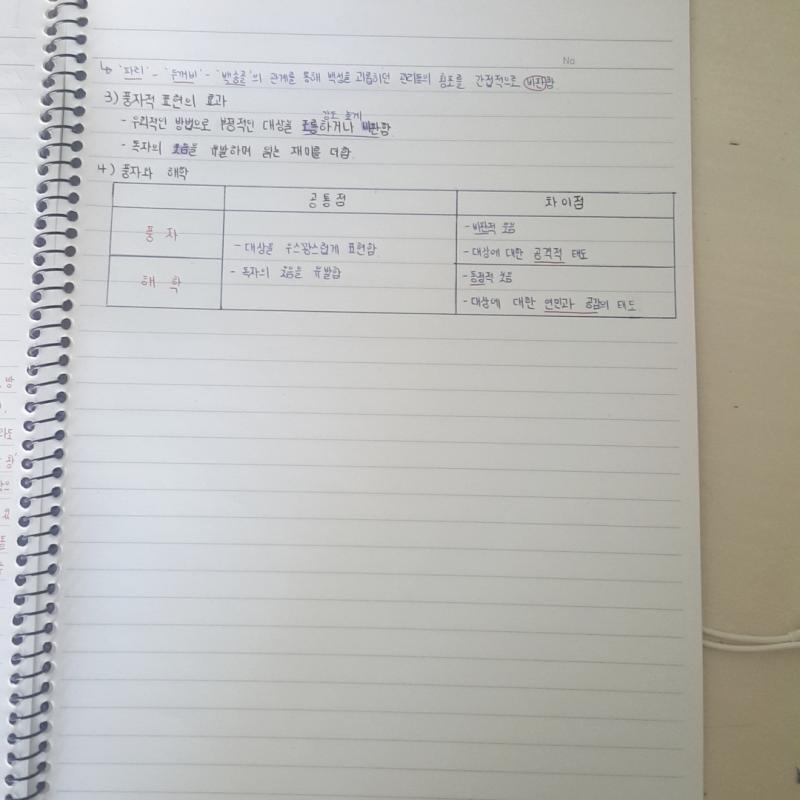 No
↳ '파리' - '두꺼비' - '백송골'의 관계를 통해 백성을 괴롭히던 관리들의 횡포를 간접적으로 비판함
3) 풍자적 표현의 효과
강도 높게
- 우회적인 방법으로 부정적인 대상을 조롱하거나 비판함.
- 독자의 웃음을 유발하며 읽는 재미를 더함.
4) 풍자와 해학
공통점 차이점
풍자
- 대상을 우스꽝스럽게 표현함
- 독자의 웃음을 유발함
- 비판적 웃음
- 대상에 대한 공격적 태도
해학
- 동정적 웃음
- 대상에 대한 연민과 공감의 태도
방